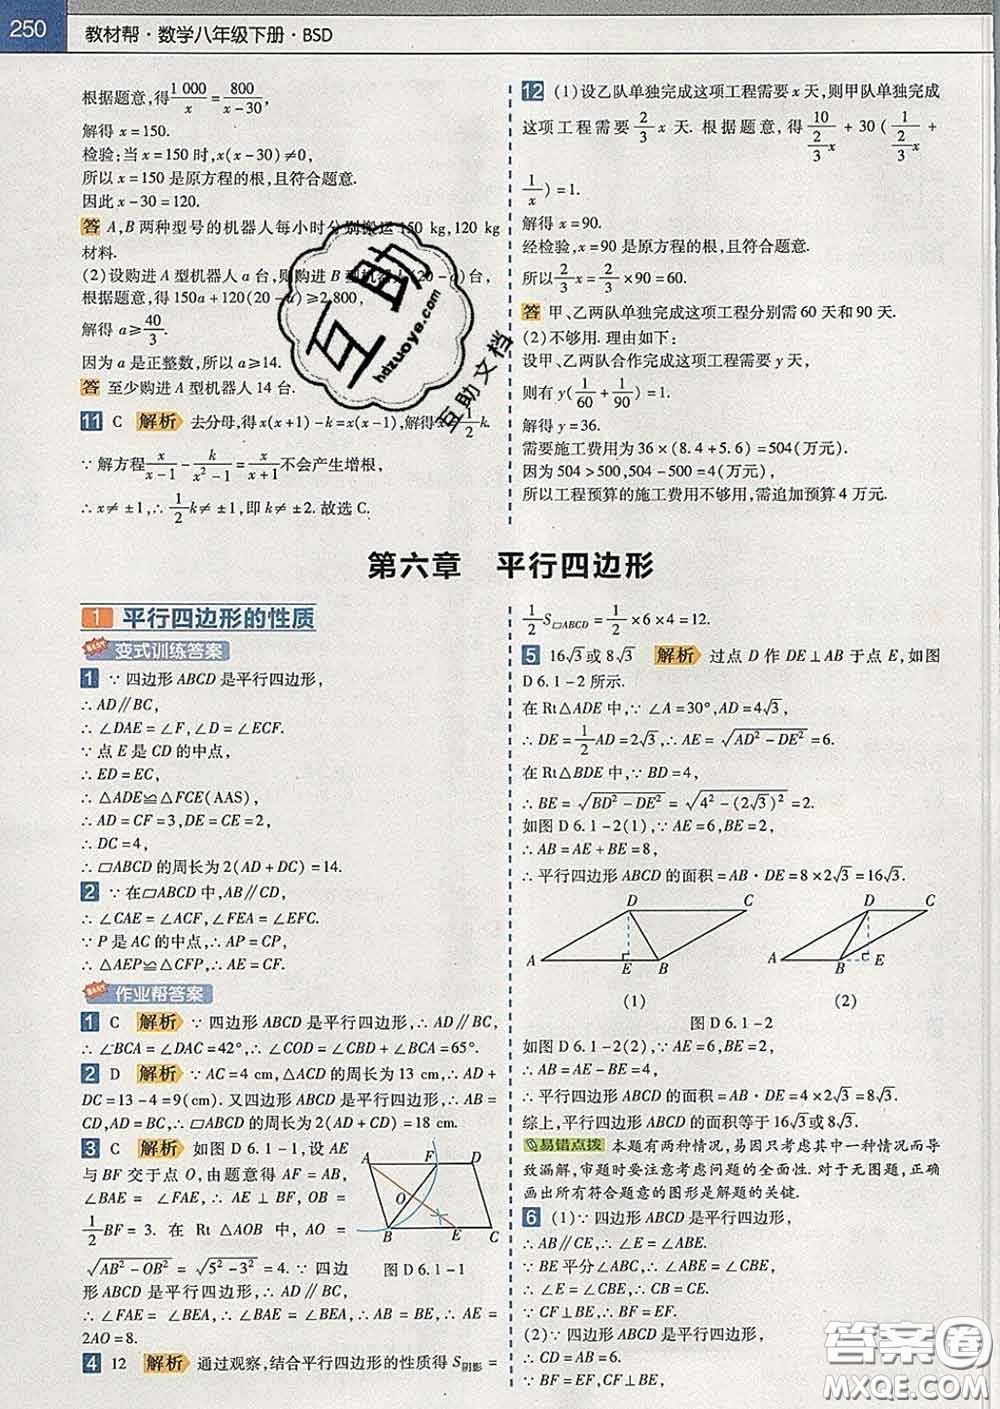 250
教材帮·数学八年级下册·BSD
根据题意,得1 000/x=800/(x-30),
解得 x=150.
检验:当 x=150 时,x(x-30)≠0,
所以 x=150 是原方程的根,且符合题意.
因此 x-30=120.
答 A,B 两种型号的机器人每小时分别搬运 150 kg,120 kg
材料.
(2)设购进 A 型机器人 a 台,则购进 B 型机器人(20-a)台,
根据题意,得 150a+120(20-a)≥2 800,
解得 a≥40/3.
因为 a 是正整数,所以 a≥14.
答 至少购进 A 型机器人 14 台.
11 C 解析 去分母,得 x(x+1)-k=x(x-1),解得 x=1/2k.
∵解方程x/(x-1)-k/(x²-1)=x/(x+1)不会产生增根,
∴x≠±1,∴1/2k≠±1,即 k≠±2. 故选 C.
12 (1)设乙队单独完成这项工程需要 x 天,则甲队单独完成
这项工程需要2/3x 天. 根据题意,得10/(2/3x)+30(1/(2/3x)+
1/x)=1.
解得 x=90.
经检验,x=90 是原方程的根,且符合题意.
所以2/3x=2/3×90=60.
答 甲、乙两队单独完成这项工程分别需 60 天和 90 天.
(2)不够用. 理由如下:
设甲、乙两队合作完成这项工程需要 y 天,
则有 y(1/60+1/90)=1.
解得 y=36.
需要施工费用为 36×(8.4+5.6)=504(万元).
因为 504>500,504-500=4(万元),
所以工程预算的施工费用不够用,需追加预算 4 万元.
第六章 平行四边形
1 平行四边形的性质
变式训练答案
1 ∵四边形 ABCD 是平行四边形,
∴AD∥BC,
∴∠DAE=∠F,∠D=∠ECF.
∵点 E 是 CD 的中点,
∴ED=EC,
∴△ADE≌△FCE(AAS),
∴AD=CF=3,DE=CE=2,
∴DC=4,
∴▱ABCD 的周长为 2(AD+DC)=14.
2 ∵在▱ABCD 中,AB∥CD,
∴∠CAE=∠ACF,∠FEA=∠EFC.
∵P 是 AC 的中点,∴AP=CP,
∴△AEP≌△CFP,AE=CF.
作业帮答案
1 C 解析 ∵四边形 ABCD 是平行四边形,∴AD∥BC,
∴∠BCA=∠DAC=42°,∴∠COD=∠CBD+∠BCA=65°.
2 D 解析 ∵AC=4 cm,△ACD 的周长为 13 cm,∴AD+
DC=13-4=9(cm). 又四边形 ABCD 是平行四边形,∴AB=
CD,AD=BC,∴▱ABCD 的周长为 2(AD+CD)=18 cm.
3 C 解析 如图 D 6.1-1,设 AE
与 BF 交于点 O,由题意得 AF=AB,
∠BAE=∠FAE,∴AE⊥BF,OB=
1/2BF=3. 在 Rt△AOB 中,AO=
√(AB²-OB²)=√(5²-3²)=4. ∵四边
形 ABCD 是平行四边形,∴AF∥BE,
∴∠FAE=∠BEA,∴∠BAE=∠BEA,∴AB=BE,∴AE=
2AO=8.
A F D
O
B E C
图 D 6.1-1
4 12 解析 通过观察,结合平行四边形的性质得 S阴影=
1/2S▱ABCD=1/2×6×4=12.
5 16√3或 8√3 解析 过点 D 作 DE⊥AB 于点 E,如图
D 6.1-2 所示.
在 Rt△ADE 中,∵∠A=30°,AD=4√3,
∴DE=1/2AD=2√3,∴AE=√(AD²-DE²)=6.
在 Rt△BDE 中,∵BD=4,
∴BE=√(BD²-DE²)=√(4²-(2√3)²)=2.
如图 D 6.1-2(1),∵AE=6,BE=2,
∴AB=AE+BE=8,
∴平行四边形 ABCD 的面积=AB·DE=8×2√3=16√3.
D C D C
A E B A B E
(1) (2)
图 D 6.1-2
如图 D 6.1-2(2),∵AE=6,BE=2,
∴AB=AE-BE=4,
∴平行四边形 ABCD 的面积=AB·DE=4×2√3=8√3.
综上,平行四边形 ABCD 的面积等于 16√3或 8√3.
易错点拨 本题有两种情况,易因只考虑其中一种情况而导
致漏解,审题时要注意考虑问题的全面性. 对于无图题,正确
画出所有符合题意的图形是解题的关键.
6 (1)∵四边形 ABCD 是平行四边形,
∴AB∥CE,∴∠E=∠ABE.
∵BE 平分∠ABC,∴∠ABE=∠CBE,
∴∠E=∠CBE,∴CB=CE.
∵CF⊥BE,∴BF=EF.
(2)∵四边形 ABCD 是平行四边形,
∴CD=AB=6.
∵BF=EF,CF⊥BE,
互助
hdzuoye.com
互助文档
答案圈
MXQE.COM